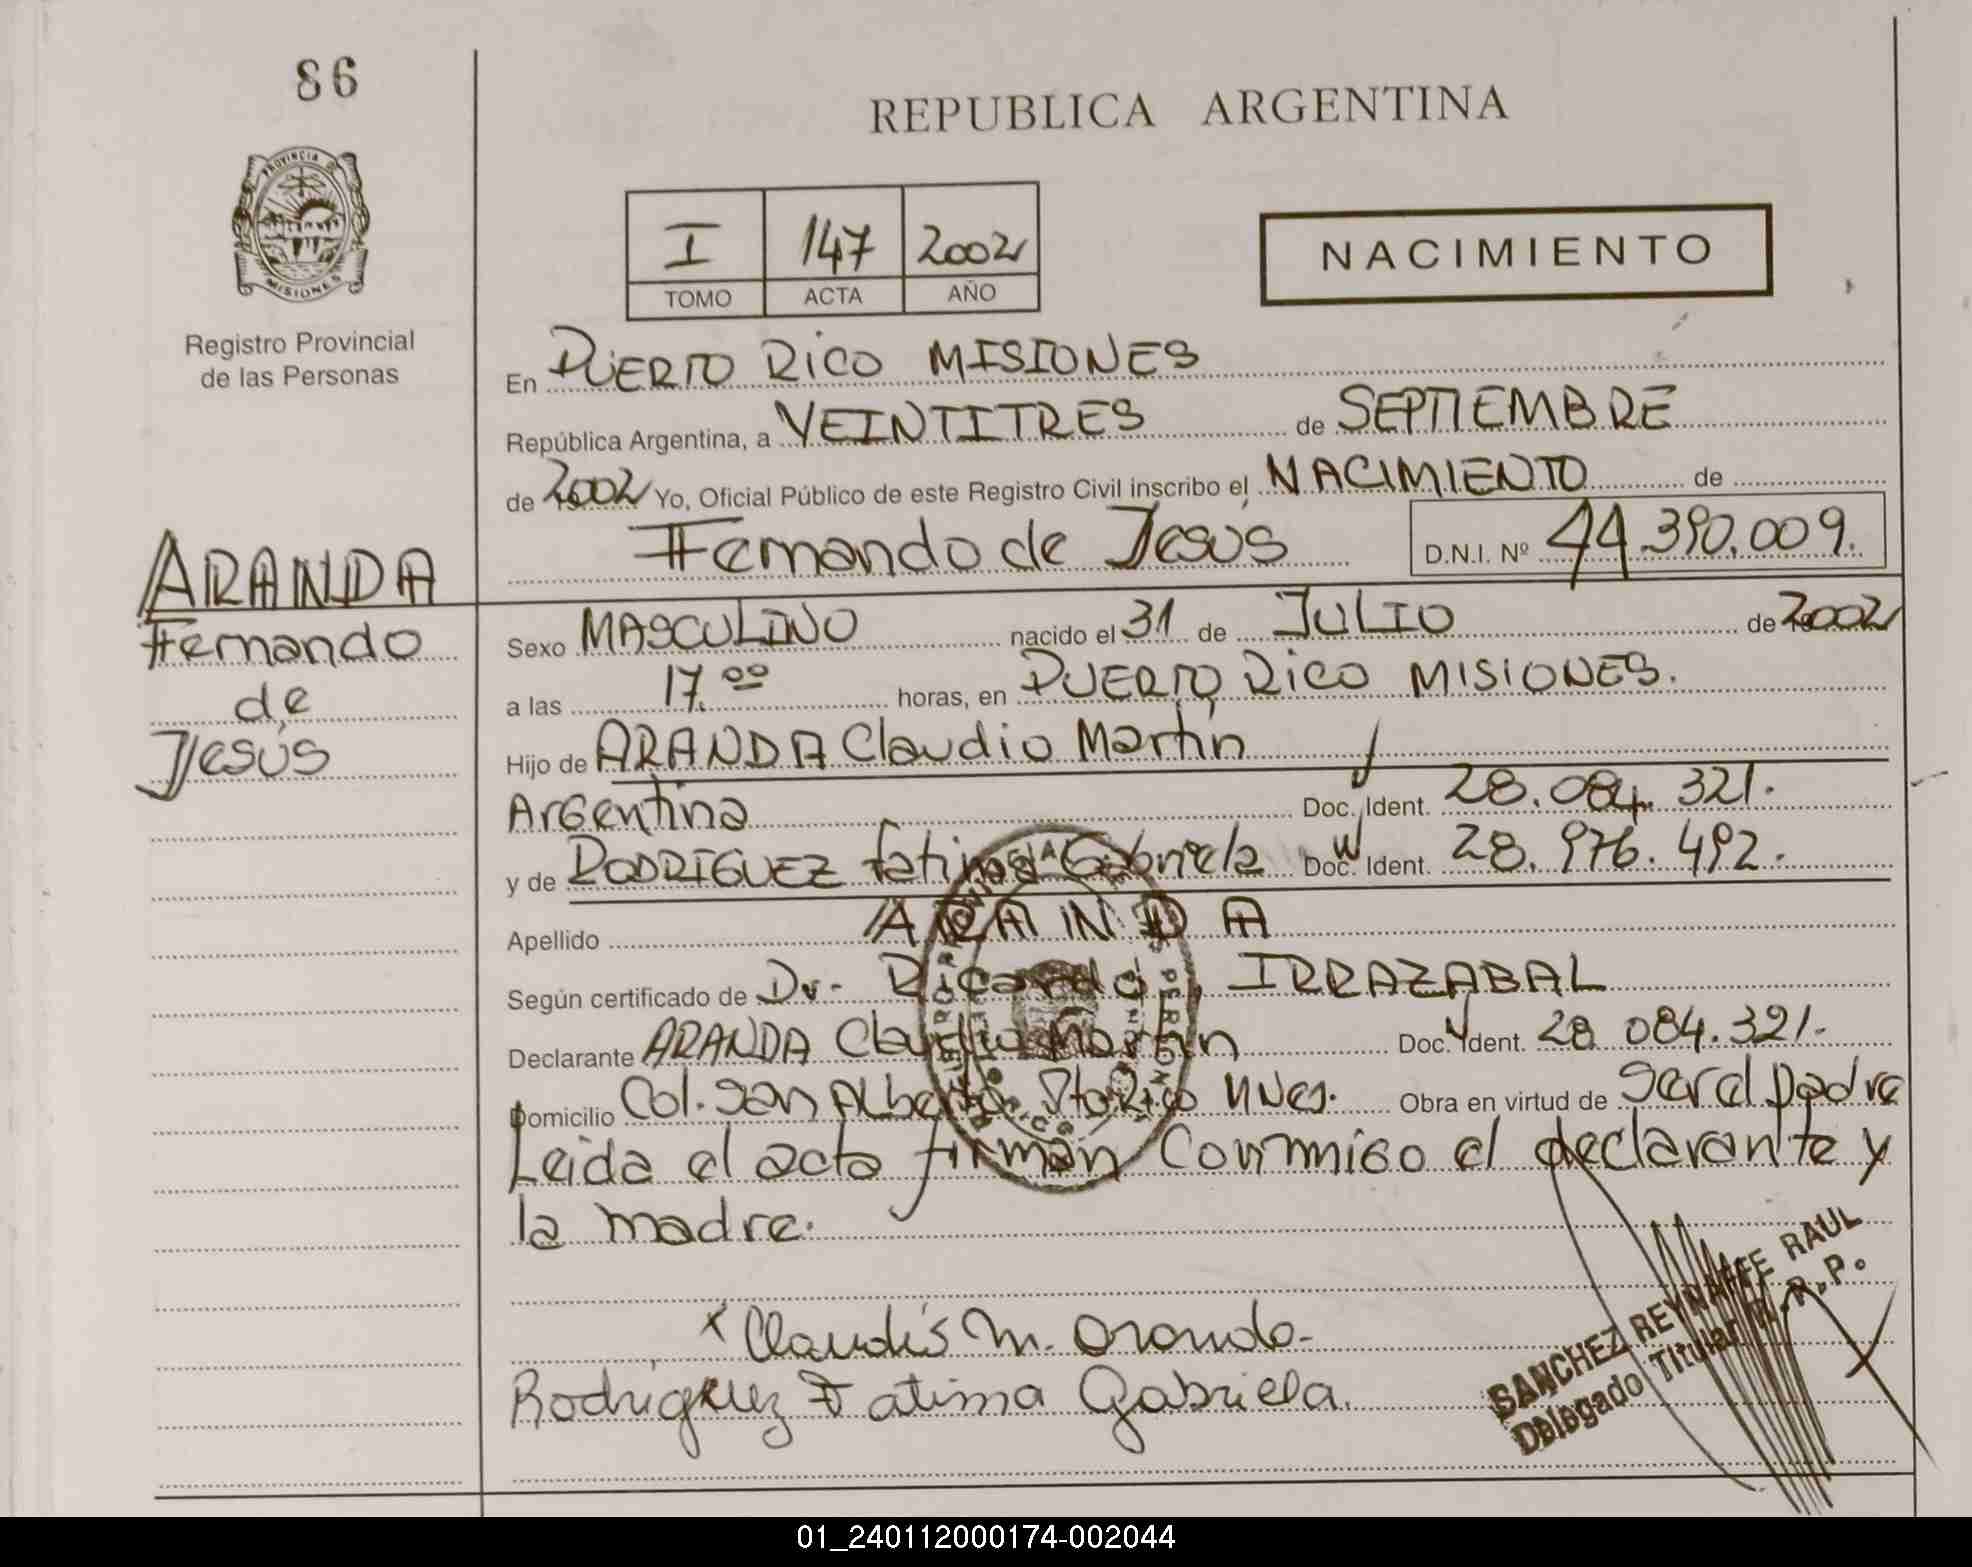 86
REPUBLICA ARGENTINA
PROVINCIA DE
MISIONES
Registro Provincial
de las Personas
I 147 2002
TOMO ACTA AÑO
NACIMIENTO
En PUERTO RICO MISIONES
República Argentina, a VEINTITRES de SEPTIEMBRE
de 2002 Yo, Oficial Público de este Registro Civil inscribo el NACIMIENTO de
Fernando de Jesús D.N.I. Nº 44.390.009.
ARANDA
Fernando
de
Jesús
Sexo MASCULINO nacido el 31 de JULIO de 2002
a las 17.00 horas, en PUERTO RICO MISIONES.
Hijo de ARANDA Claudio Martín
Argentina Doc. Ident. 28.084.321.
y de RODRIGUEZ Fatima Gabriela Doc. Ident. 28.976.492.
Apellido ARANDA
Según certificado de Dr. Ricardo IRRAZABAL
Declarante ARANDA Claudio Martín Doc. Ident. 28 084.321.
Domicilio Col. San Alberto Pto Rico Mnes. Obra en virtud de ser el padre
Leida el acta firman conmigo el declarante y
la madre.
x Claudio M. Aranda
Rodriguez Fatima Gabriela.
SANCHEZ REYNAFFE RAUL
Delegado Titular R.P.P.
01_240112000174-002044